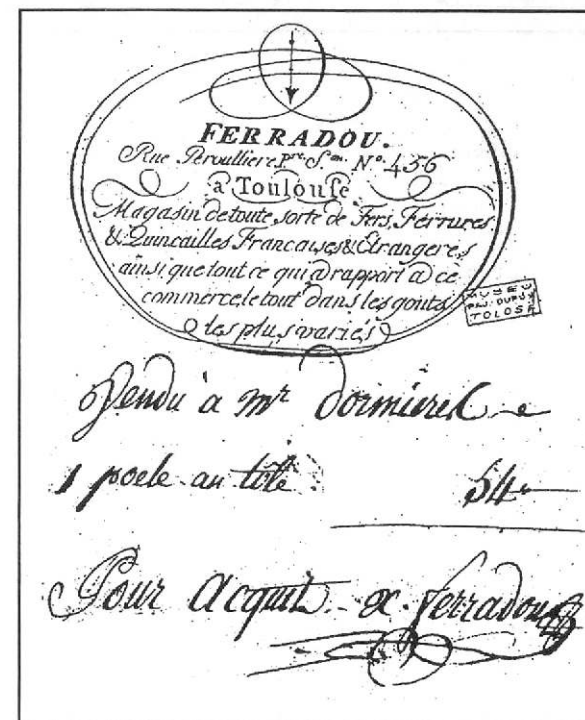 FERRADOU.
Rue Peroulliere Pre. Son. No. 456
a Toulouse
Magasin de toute sorte de Fers, Ferrures
& Quincailles Francaises & Etrangeres
ainsi que tout ce qui a rapport a ce
commerce le tout dans les gouts
les plus variés
MUSEE
PAUL DUPUY
TOLOSE
Vendu a mr
1 poele au tôle 54
Pour Acquit Ferradou